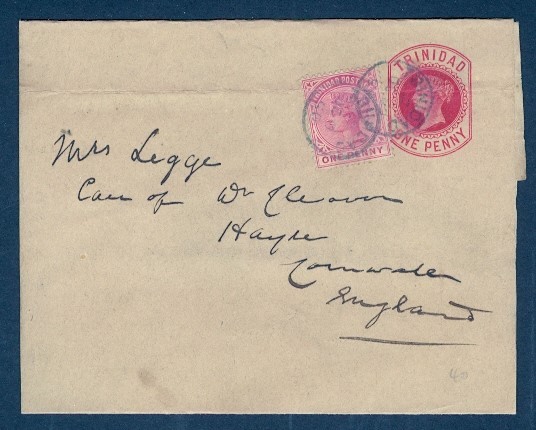 TRINIDAD
ONE PENNY
TRINIDAD POST
ONE PENNY
Mrs Legge
Care of Dr
Hayle
Cornwall
England
40